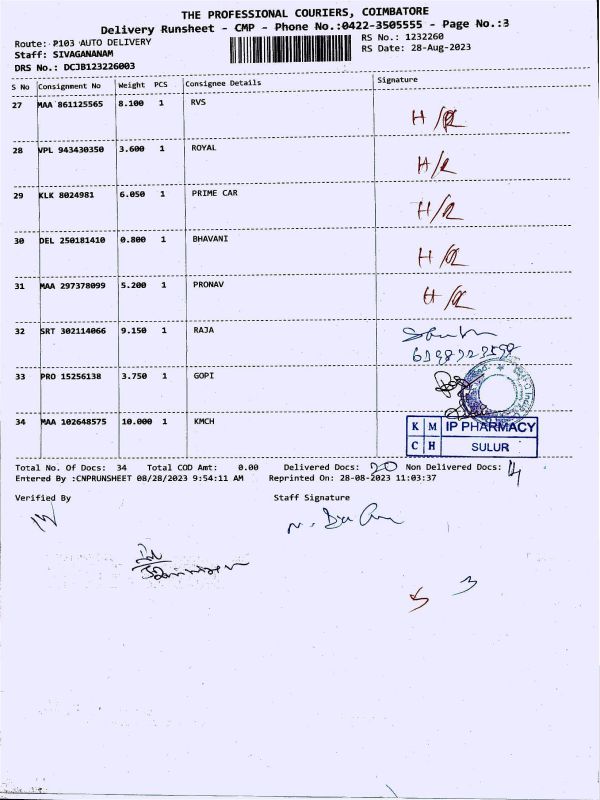 THE PROFESSIONAL COURIERS, COIMBATORE
Delivery Runsheet - CMP - Phone No.:0422-3505555 - Page No.:3
Route: P103 AUTO DELIVERY RS No.: 1232260
Staff: SIVAGANANAM RS Date: 28-Aug-2023
DRS No.: DCJB123226003
S No Consignment No Weight PCS Consignee Details Signature
27 MAA 861125565 8.100 1 RVS
H/R
28 VPL 943430350 3.600 1 ROYAL
H/R
29 KLK 8024981 6.050 1 PRIME CAR
H/R
30 DEL 250181410 0.800 1 BHAVANI
H/R
31 MAA 297378099 5.200 1 PRONAV
H/R
32 SRT 302114066 9.150 1 RAJA
33 PRO 15256138 3.750 1 GOPI
34 MAA 102648575 10.000 1 KMCH
K M IP PHARMACY
C H SULUR
Total No. Of Docs: 34 Total COD Amt: 0.00 Delivered Docs: 20 Non Delivered Docs: 14
Entered By :CNPRUNSHEET 08/28/2023 9:54:11 AM Reprinted On: 28-08-2023 11:03:37
Verified By Staff Signature